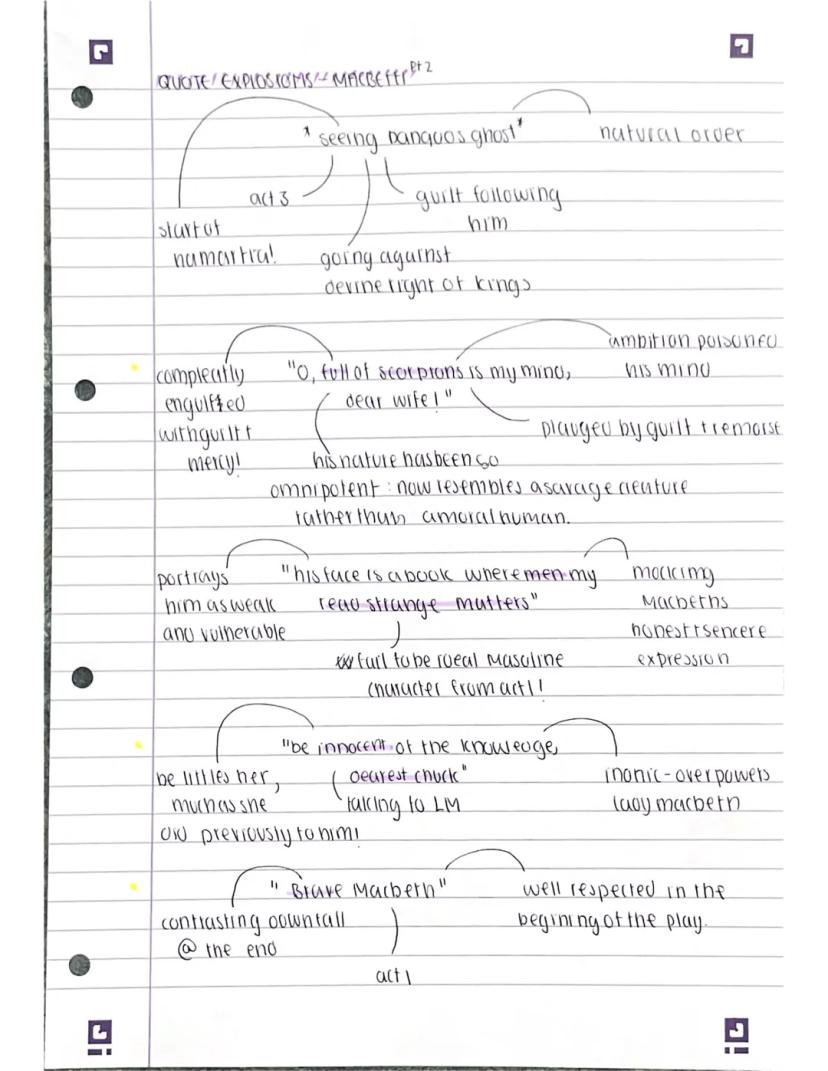 QUOTE EXPLOSIONS - MACBETH Pt 2
* seeing banquos ghost *
natural order
act 3
guilt following
him
start of
hamartia!
going against
devine right of kings
ambition poisoned
his mind
compleatly
engulfed
with guilt +
mercy!
"O, full of scorpions is my mind,
dear wife!"
plauged by guilt + remorse
his nature has been so
omnipotent : now resembles a savage creature
rather than a moral human.
portrays
him as weak
and vulnerable
"his face is a book where men my
read strange matters"
mocking
Macbeths
honest + sencere
expression
fail to be ideal Masculine
character from act 1!
"be innocent of the knowledge,
dearest chuck"
be littles her,
much as she
did previously to him!
talking to LM
ironic - overpowers
lady macbeth
"Brave Macbeth"
contrasting downfall
@ the end
well respected in the
begining of the play.
act 1